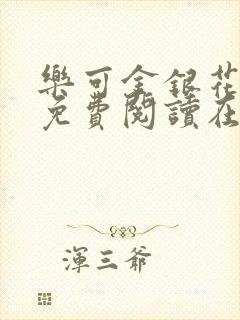 樂可金銀花
免費閱讀在
渾三爺